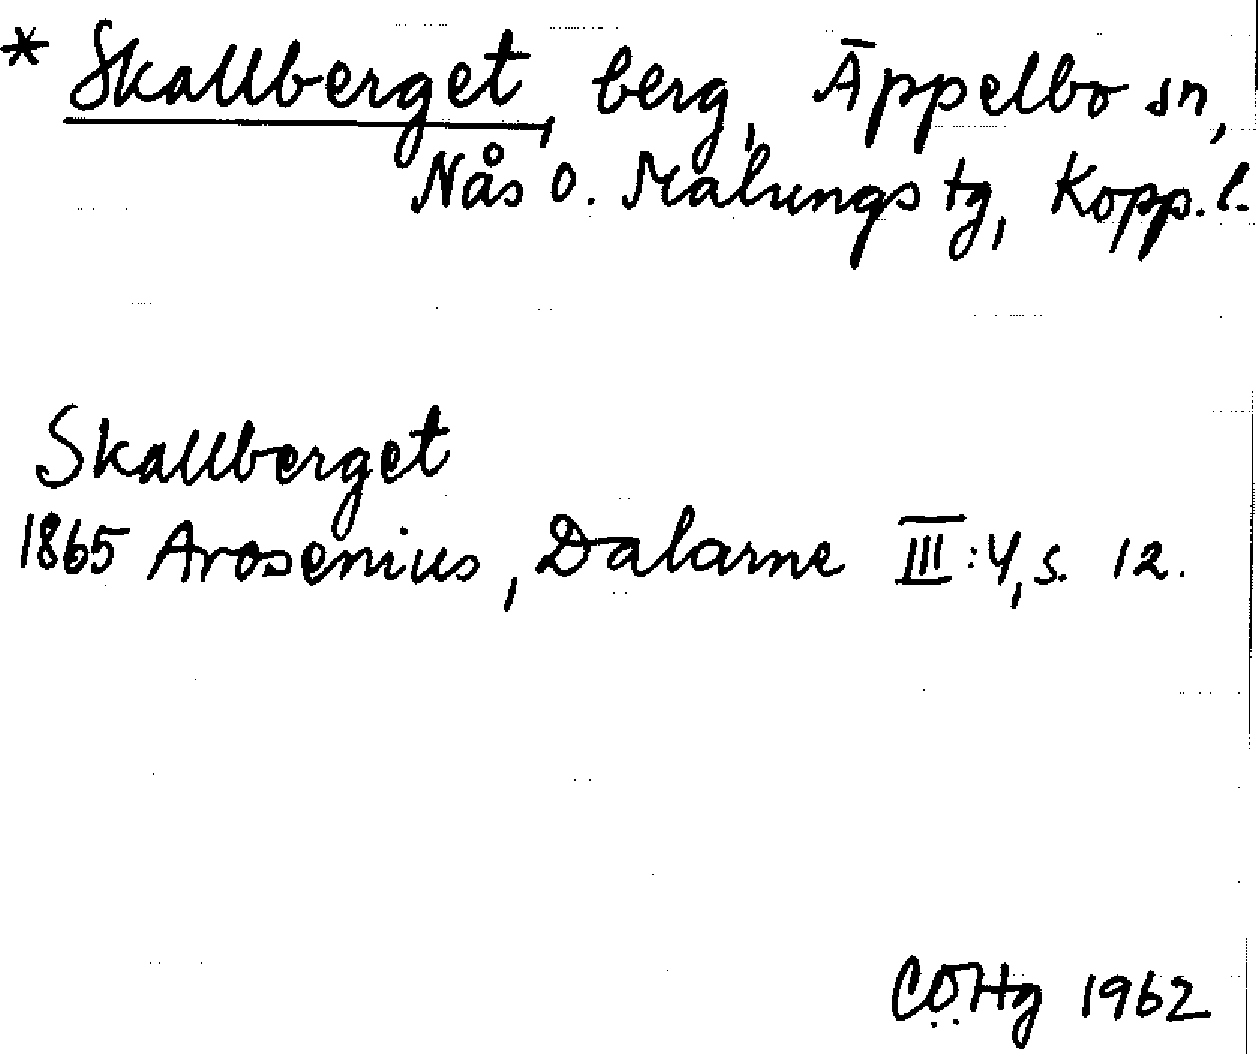 * Skallberget, berg, Äppelbo sn,
Nås o. Malungs tg, Kopp. l.
Skallberget
1865 Arosenius, Dalarne III:4, s. 12.
CÖHg 1962